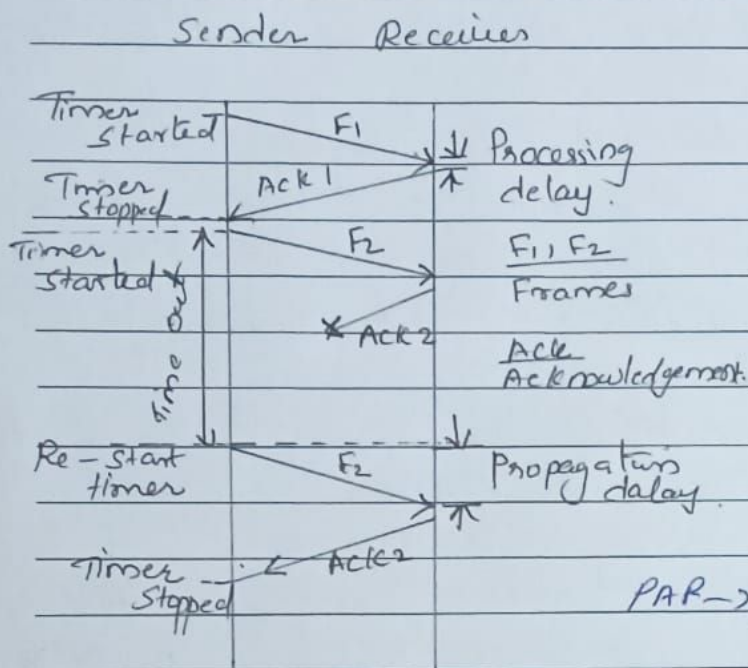 Sender Receiver
Timer
started
F1
Processing
delay.
Ack 1
Timer
stopped
Timer
started
F2
F1, F2
Frames
Time Out
ACK 2
Ack
Acknowledgement.
Re-start
timer
F2
Propagation
dalay.
ACK2
Timer
Stopped
PAR->